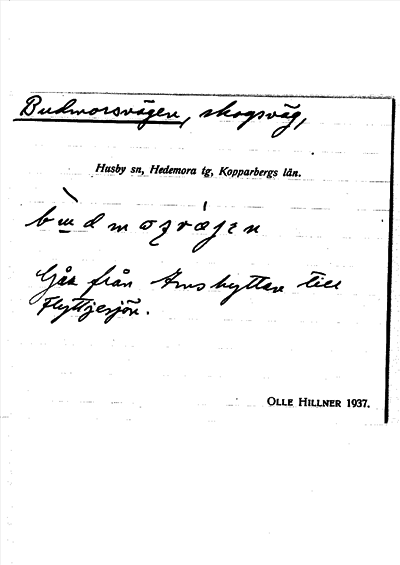 Budmorsvägen, skogsväg,
Husby sn, Hedemora tg, Kopparbergs län.
Går från Amshyttan till
Flyttjesjön.
OLLE HILLNER 1937.